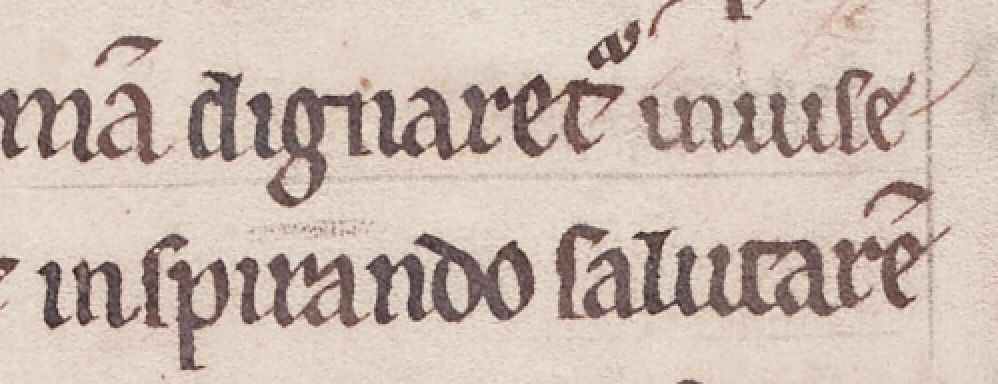 mā dignaret᷑ inuise
inspirando salutarē